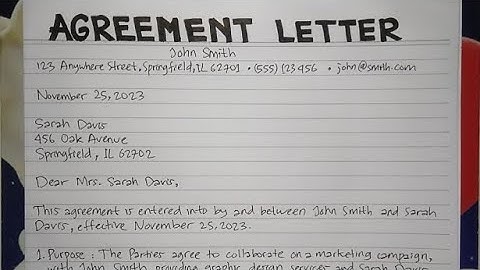 AGREEMENT LETTER
John Smith
123 Anywhere Street, Springfield, IL 62701 • (555) 123456 • john@smith.com
November 25, 2023
Sarah Davis
456 Oak Avenue
Springfield, IL 62702
Dear Mrs. Sarah Davis,
This agreement is entered into by and between John Smith and Sarah
Davis, effective November 25, 2023.
1. Purpose : The Parties agree to collaborate on a marketing campaign,
with John Smith providing graphic design services and Sarah Davis